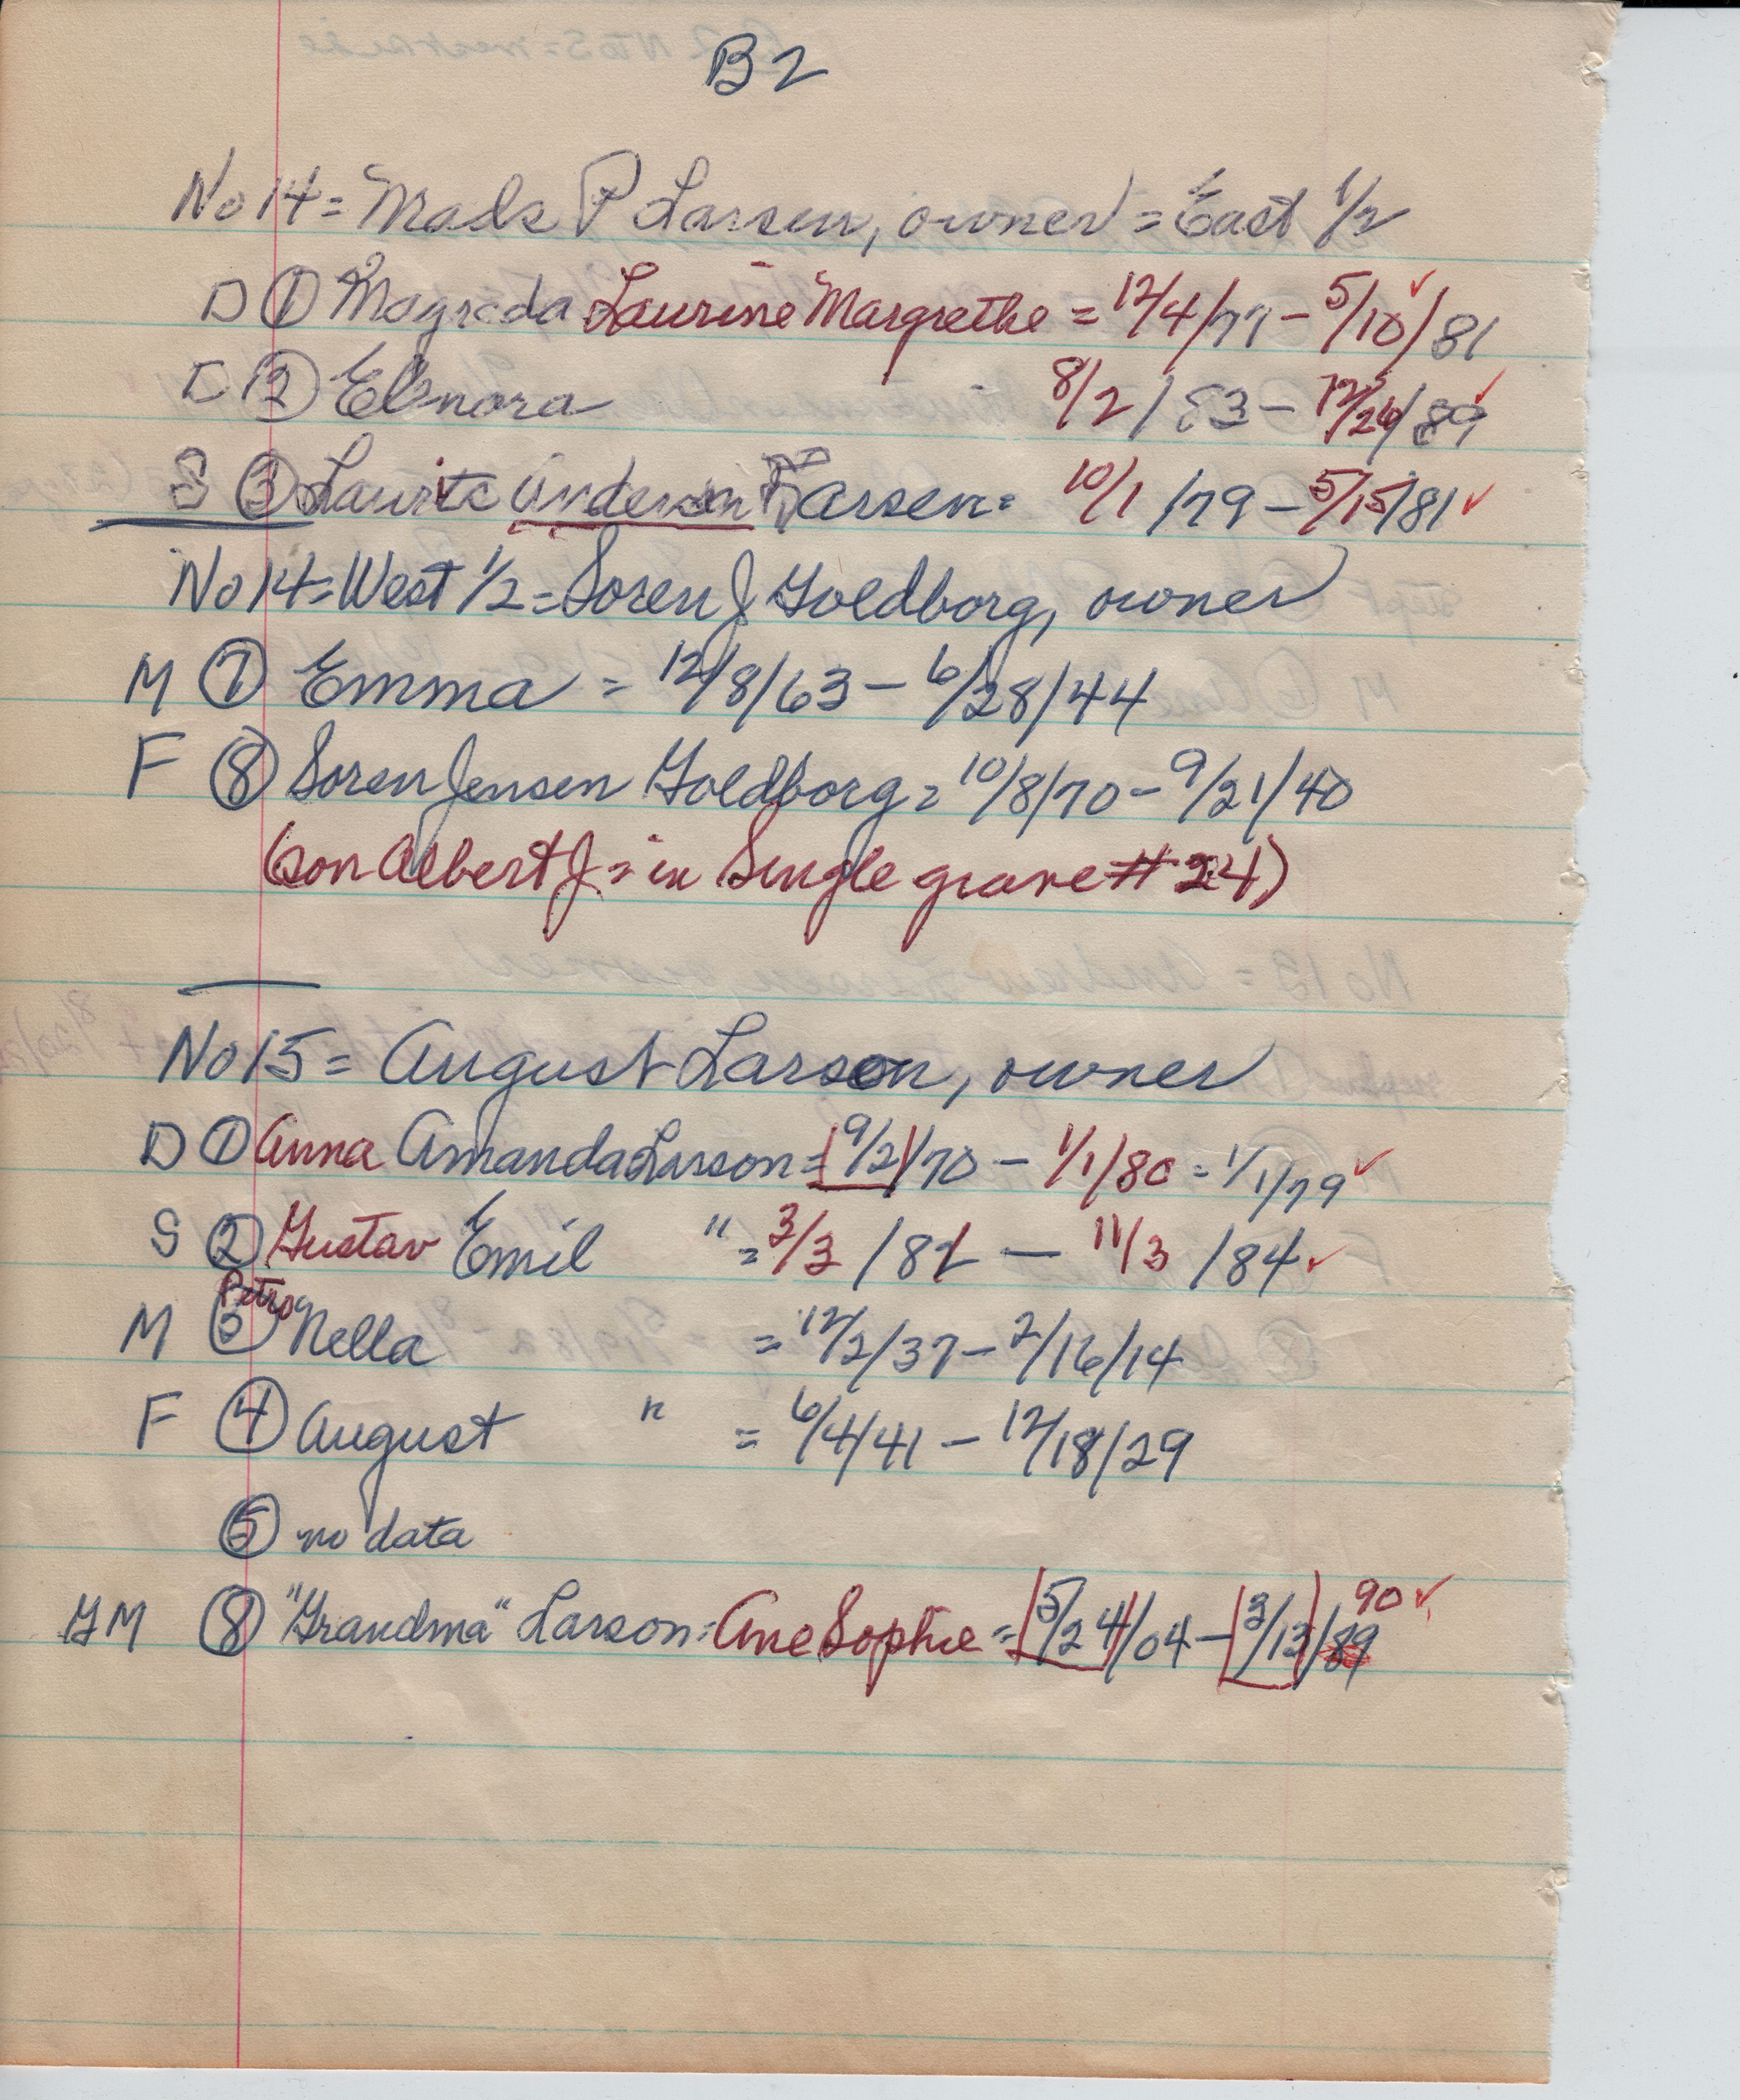 B2
No 14 = Mads P Larsen, owner = East 1/2
D ① Magreda Laurine Margrethe = 12/4/77 - 5/10/81
D ② Elenora 8/2/83 - 12/26/89
S ③ Laurits Andersen Larsen = 10/1/79 - 5/15/81
No 14 = West 1/2 = Soren J Goldborg, owner
M ⑦ Emma = 12/8/63 - 6/28/44
F ⑧ Soren Jensen Goldborg = 10/8/70 - 9/21/40
(son Albert J = in Single grave # 24)
No 15 = August Larson, owner
D ① Anna Amanda Larson = 9/21/70 - 1/1/80 = 1/1/79
S ② Gustav Emil " = 3/3/82 - 11/3/84
Petro
M ③ Nella = 12/2/37 - 2/16/14
F ④ August " = 6/4/41 - 12/18/29
⑤ no data
90
GM ⑧ "Grandma" Larson = Ane Sophie = 5/24/04 - 3/13/89